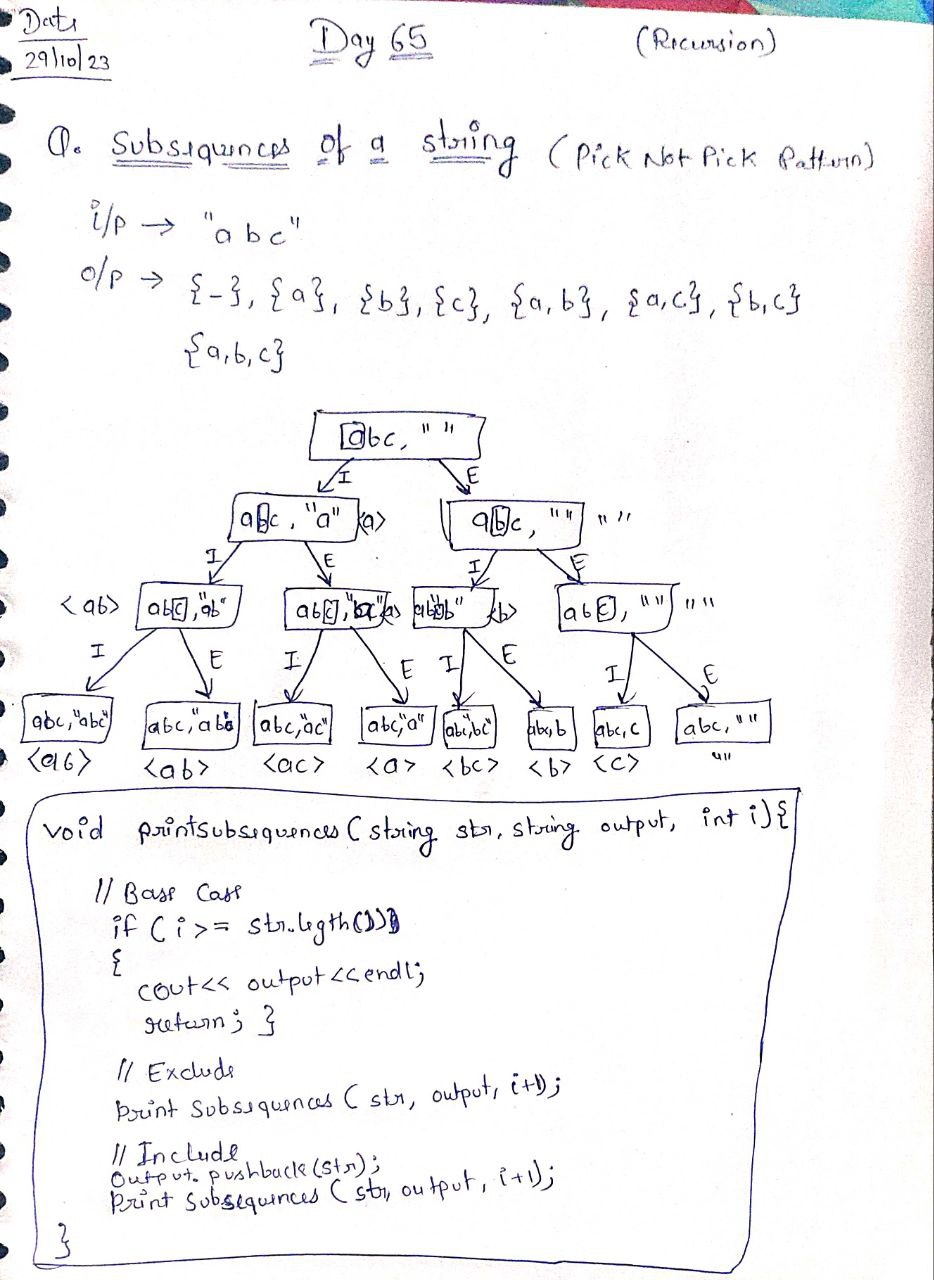 Date
29/10/23
Day 65
(Recursion)
Q. Subsequences of a string (Pick Not Pick Pattern)
i/p → "abc"
o/p → {-}, {a}, {b}, {c}, {a,b}, {a,c}, {b,c}
{a,b,c}
abc, " "
I E
abc, "a" <a> abc, " " " "
I E I E
<ab> abc, "ab" abc, a> ab "b" <b> abc, " " " "
I E I E I E I E
abc, "abc" abc, "ab abc, "ac" abc, "a" abc, "bc" abc, b abc, c abc, " "
<ab> <ab> <ac> <a> <bc> <b> <c> " "
void printsubsequences (string str, string output, int i){
// Base Case
if (i >= str.legth())
{
cout<< output <<endl;
return; }
// Exclude
Print Subsequences (str, output, i+1);
// Include
Output. pushback(str);
Print Subsequences (str, output, i+1);
}